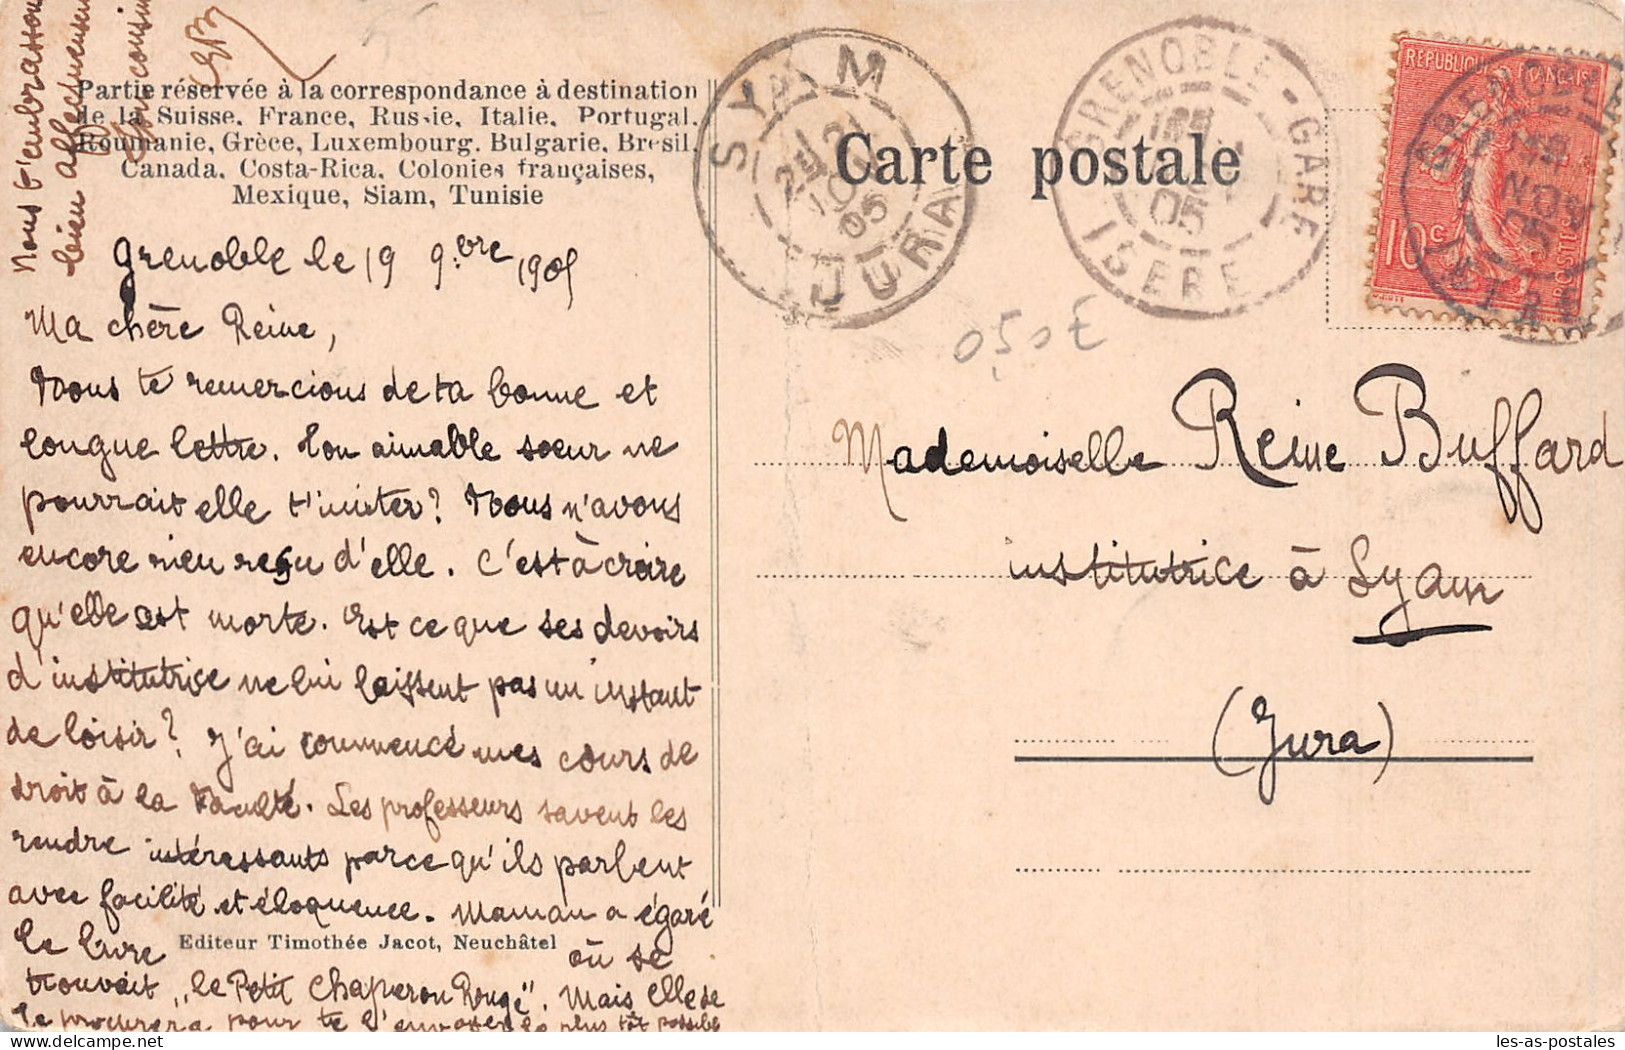 Nous t'embrassons
bien affectueusement
Ton cousin
Partie réservée à la correspondance à destination
de la Suisse, France, Russie, Italie, Portugal,
Roumanie, Grèce, Luxembourg, Bulgarie, Brésil,
Canada, Costa-Rica, Colonies françaises,
Mexique, Siam, Tunisie
Grenoble le 19 9.bre 1905
Ma chère Reine,
Nous te remercions de ta bonne et
longue lettre. Ton aimable soeur ne
pourrait elle t'imiter? Nous n'avons
encore rien reçu d'elle. C'est à croire
qu'elle est morte. Est ce que ses devoirs
d'institutrice ne lui laissent pas un instant
de loisir? J'ai commencé mes cours de
droit à la Faculté. Les professeurs savent les
rendre intéressants parce qu'ils parlent
avec facilité et éloquence. Maman a égaré
le livre où se
Editeur Timothée Jacot, Neuchâtel
trouvait "le Petit Chaperon Rouge". Mais elle se
le procurera pour te l'envoyer le plus tôt possible
SYAM
21
05
JURA
Carte postale
GRENOBLE-GARE
05
ISERE
REPUBLIQUE FRANÇAISE
10c
POSTES
GRENOBLE
NOV
05
ISERE
0,50
Mademoiselle Reine Buffard
institutrice à Syam
(Jura)
les-as-postales